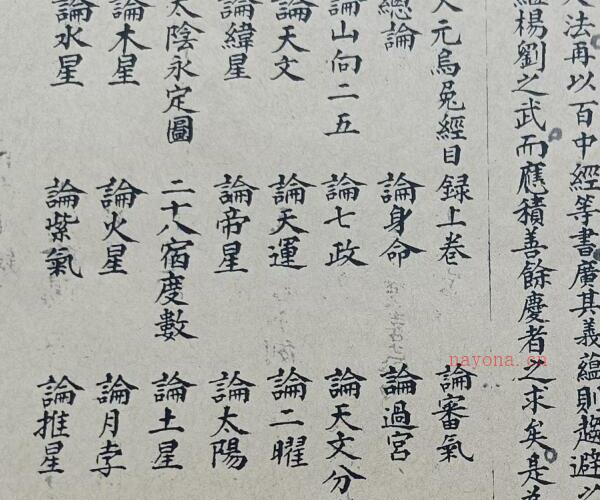 法再以百中經等書廣其義蘊則趨避
楊劉之武而應積善餘慶者之求矣是
元烏兔經目録上卷 論審氣
總論 論身命 論過宮
論山向二五 論七政 論天文分
論天文 論天運 論二曜
論緯星 論帝星 論太陽
太陰永定圖 二十八宿度數 論土星
論木星 論火星 論月孛
論水星 論紫氣 論推星
nayona.cn